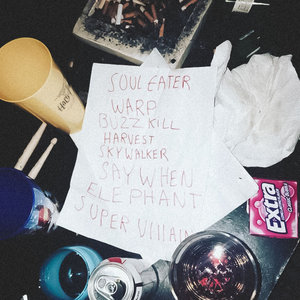 SOUL EATER
WARP
BUZZ KILL
HARVEST
SKYWALKER
SAY WHEN
ELEPHANT
SUPER VILLAIN
Extra